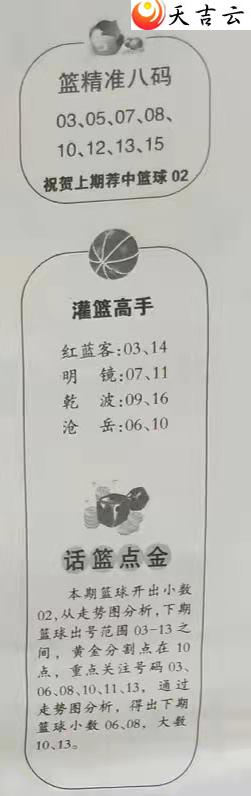 天吉云
篮精准八码
03、05、07、08、
10、12、13、15
祝贺上期荐中篮球 02
灌篮高手
红蓝客:03、14
明　镜:07、11
乾　波:09、16
沧　岳:06、10
话篮点金
本期篮球开出小数
02,从走势图分析,下期
篮球出号范围 03-13 之
间，黄金分割点在 10
点，重点关注号码 03、
06、08、10、11、13，通过
走势图分析，得出下期
篮球小数 06、08，大数
10、13。